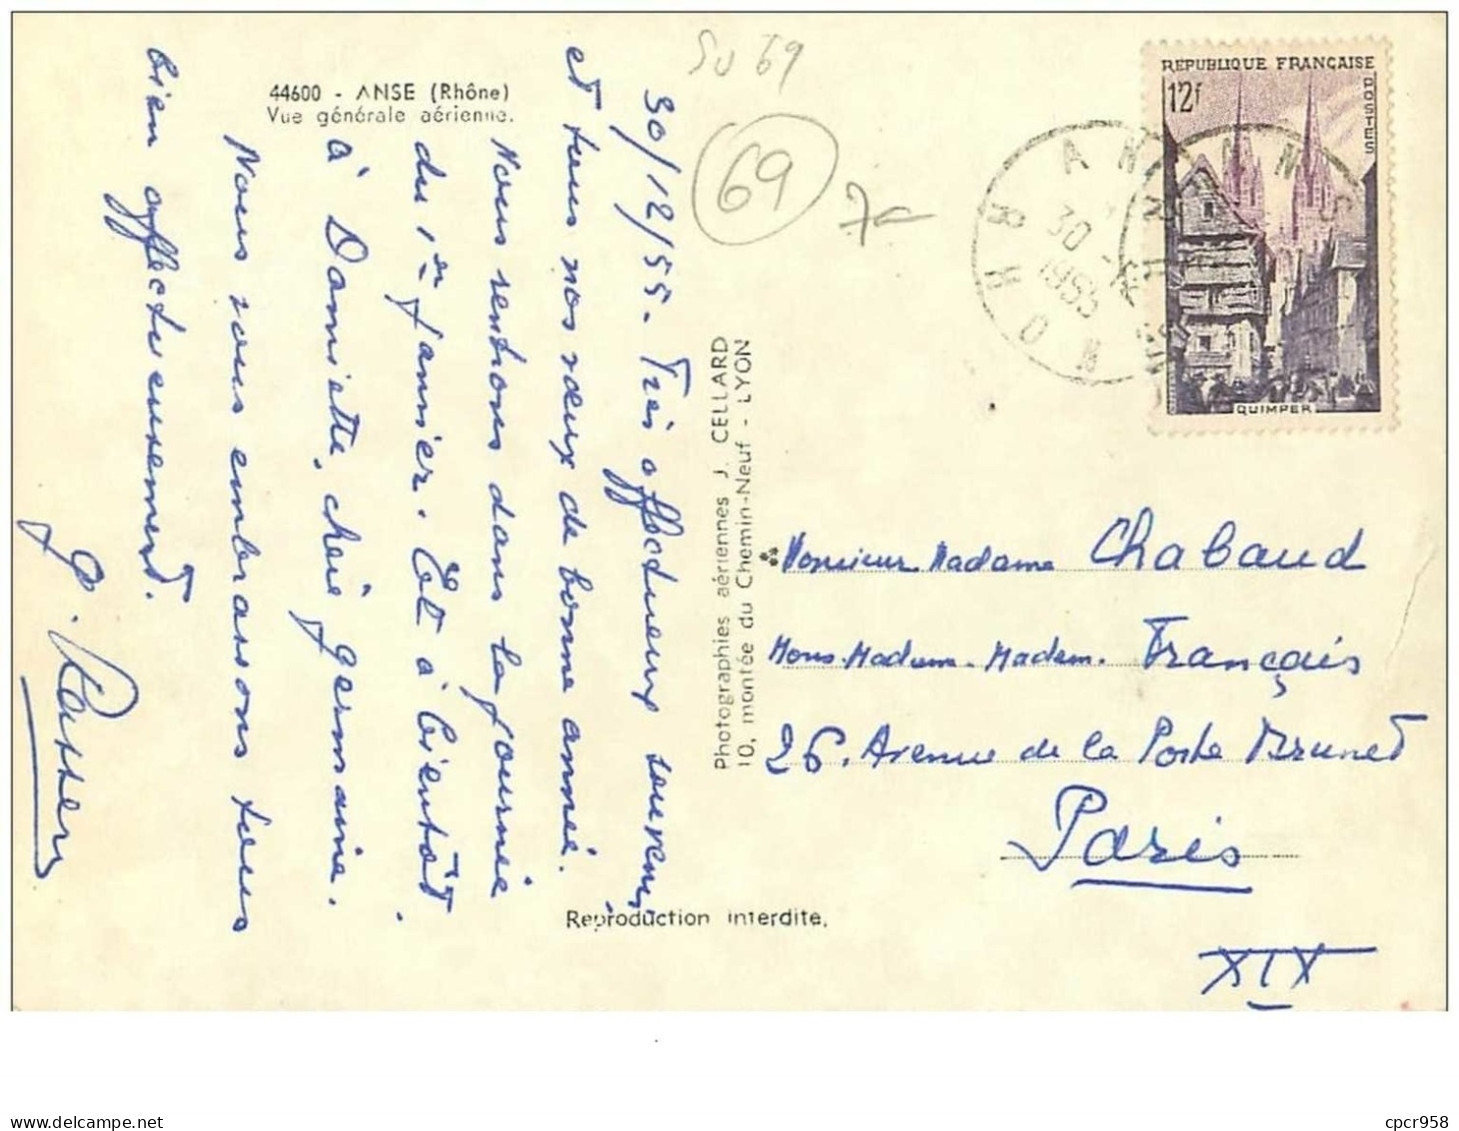 44600 - ANSE (Rhône)
Vue générale aérienne.
SU 69
69
30/12/55. Très affectueux souvenir
et tous nos vœux de bonne année.
Nous rentrons dans la journée
du 1er janvier. Et à bientôt
à Damiette, chère Germaine.
Nous vous embrassons tous
bien affectueusement.
Photographies aériennes J. CELLARD
10, montée du Chemin-Neuf - LYON
Reproduction interdite.
REPUBLIQUE FRANÇAISE
12f
POSTES
QUIMPER
ANSE
RHONE
30 - 12
1955
Monsieur Madame Chabaud
Mons. Madam. Madem. Français
26. Avenue de la Porte Brunet
Paris
XIX
cpcr958